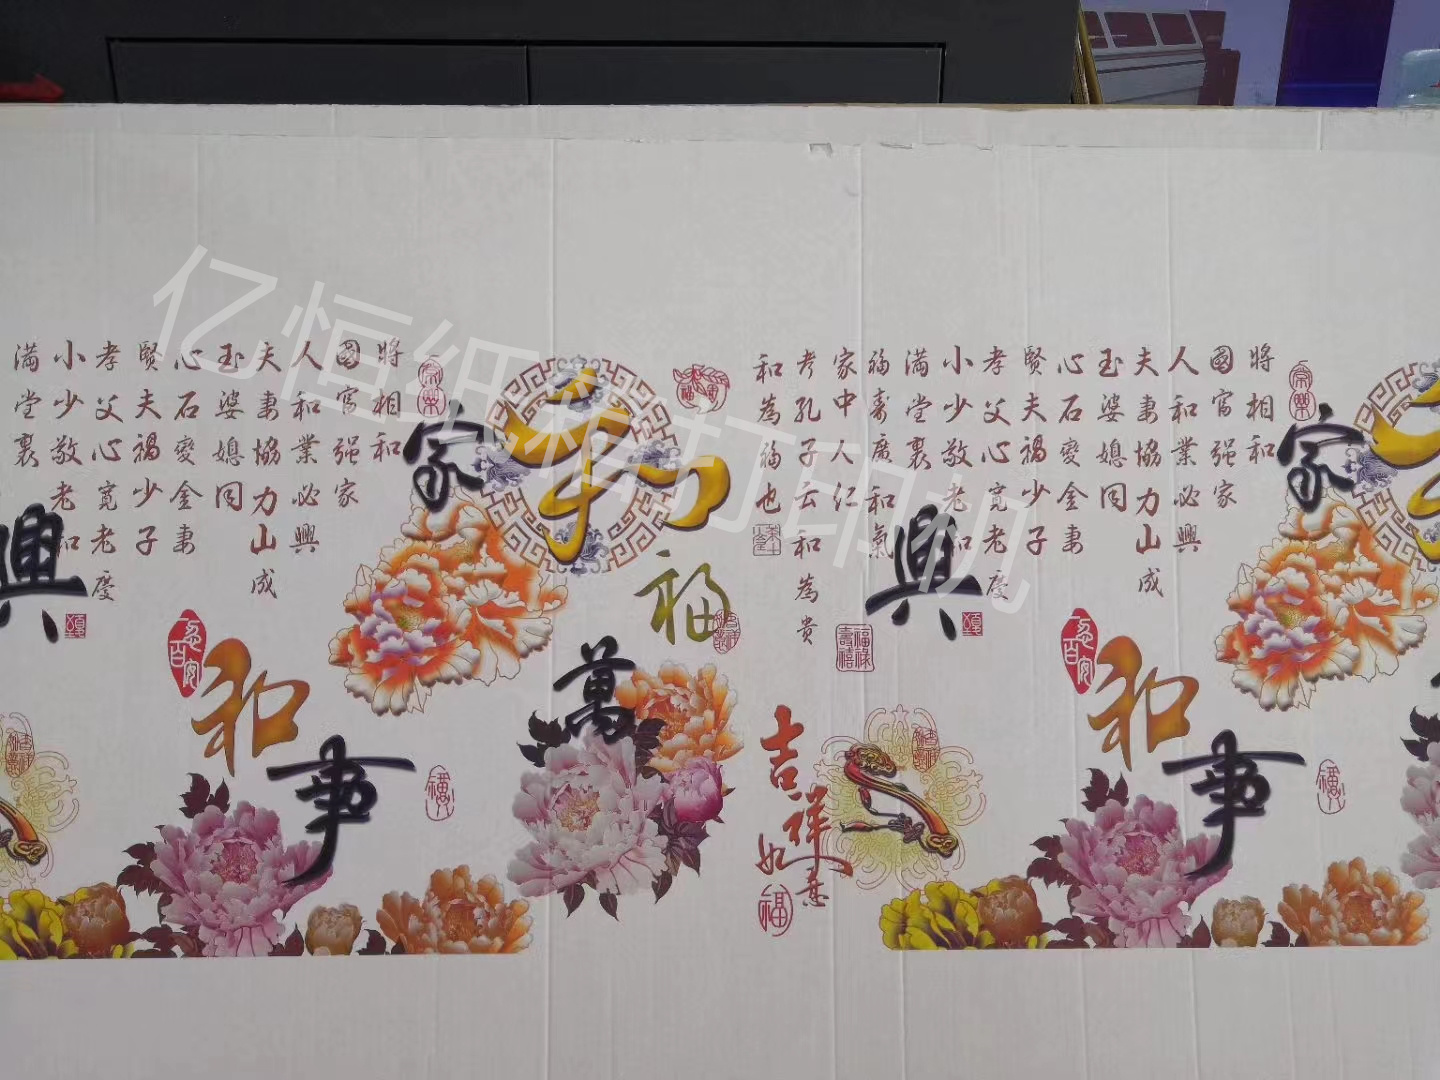 亿恒纸箱打印机
將相和
國富强家
人和業必興
夫妻協力山成
玉婆媳同
心石變金妻
賢夫禍少子
孝父心寬老慶
小少敬老和
满堂裏
福壽廣和氣
家中人仁
考孔子云和為贵
和為福也
家
和
興
福
萬
和
事
吉祥如意
福
福祿壽禧
將相和
國富强家
人和業必興
夫妻協力山成
玉婆媳同
心石變金妻
賢夫禍少子
孝父心寬老慶
小少敬老和
满堂裏
家
和
興
萬
和
事